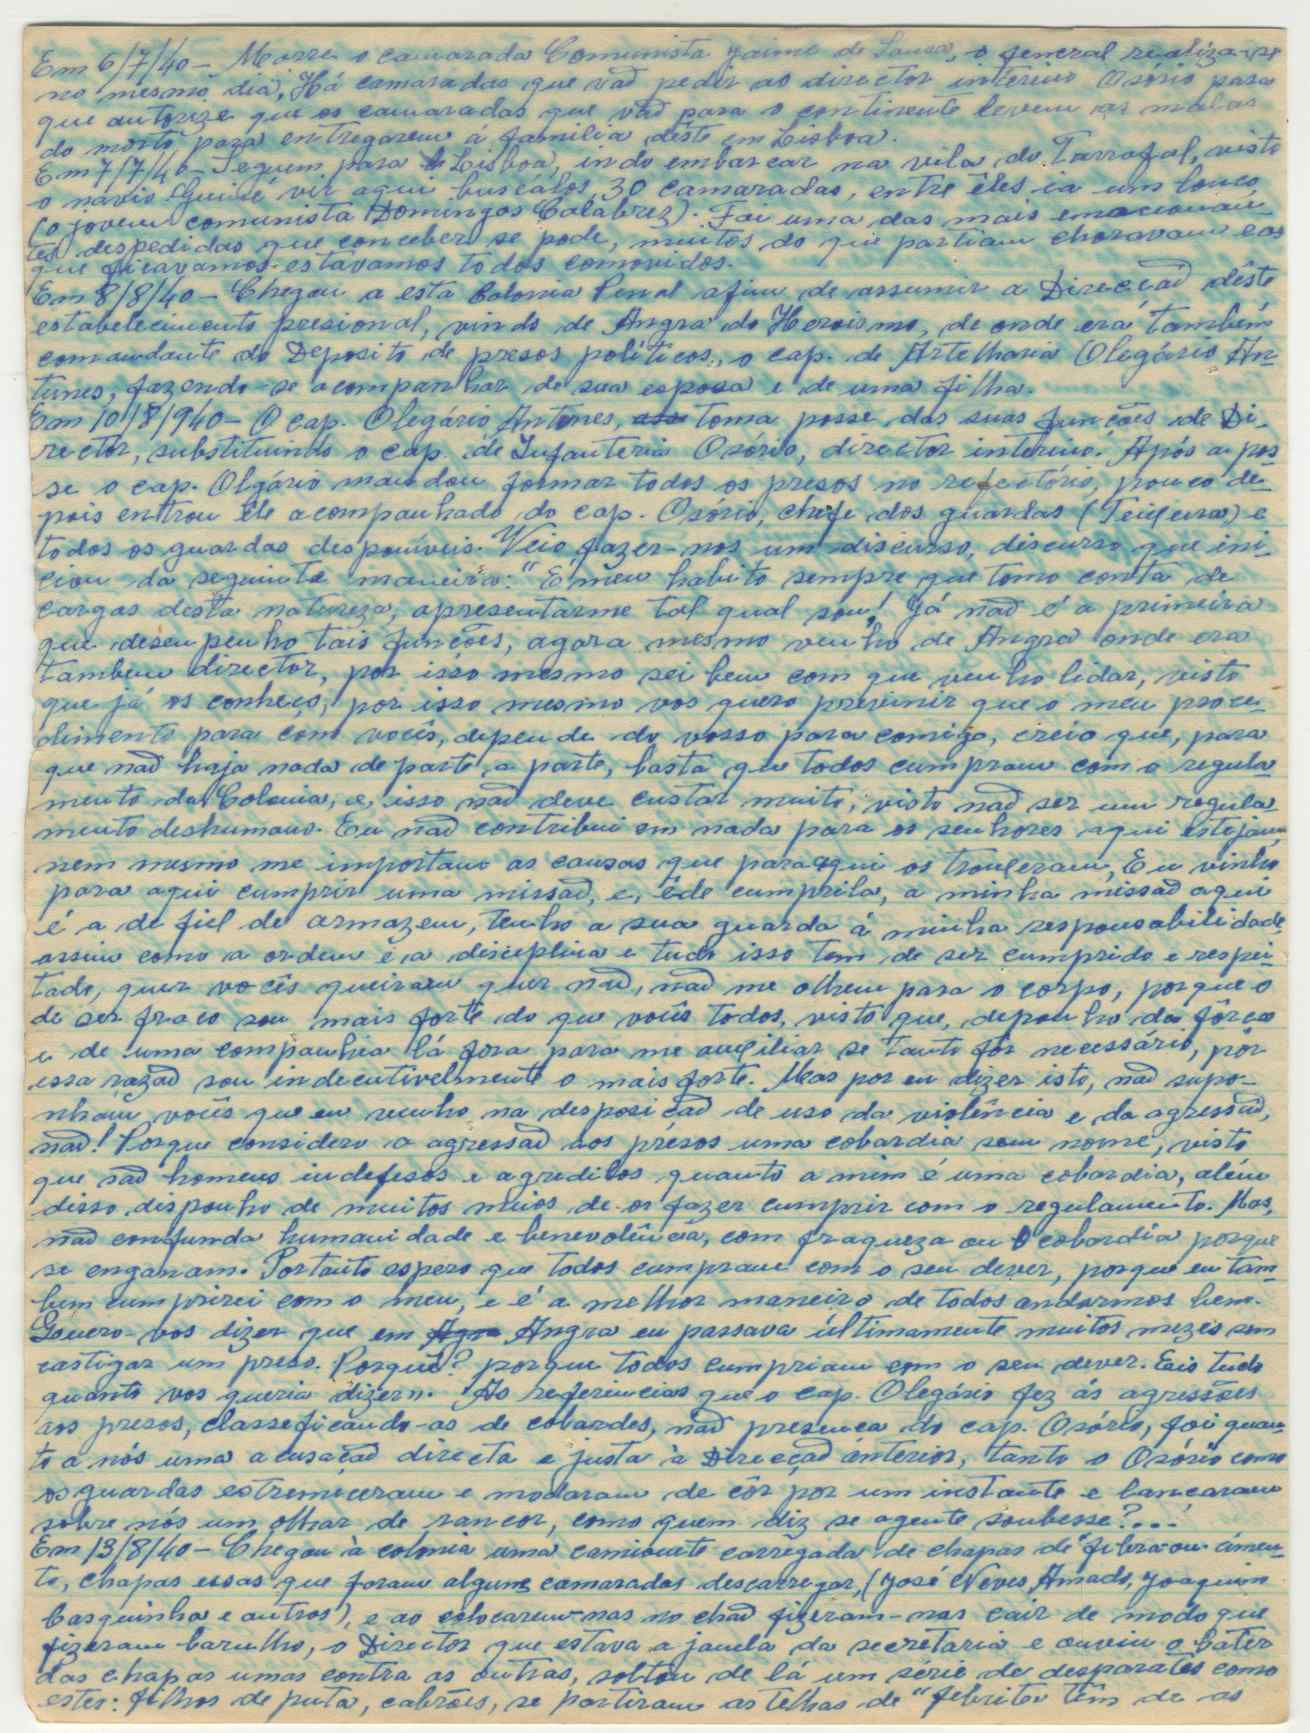 Em 6/7/40 - Morre o camarada Comunista Jaime de Sousa, o feneral realiza-se
no mesmo dia. Há camaradas que vaõ pedir ao director interino Osório para
que autorize que os camaradas que vaõ para o continente levem as malas
do morto para entregarem á familia deste em Lisboa.
Em 7/7/40 - Seguem para Lisboa, indo embarcar na vila do Tarrafal, visto
o navio Guiné vir aqui buscálos, 30 camaradas, entre êles ia um louco
(o jovem comunista Domingos Calabrez). Foi uma das mais emocionan-
tes despedidas que conceber se pode, muitos do que partiam choravam e os
que ficavamos estavamos todos comovidos.
Em 8/8/40 - Chegou a esta Colonia Penal afim de assumir a Direcçaõ dêste
estabelecimento presional, vindo de Angra do Heroismo, de onde era também
comandante do Deposito de presos políticos, o cap. de Artelharia Olegário An-
tunes, fazendo-se acompanhar de sua esposa e de uma filha.
Em 10/8/940 - O cap. Olegário Antones, toma posse das suas funcões de Di-
rector, substituindo o cap. de Infanteria Osório, director interino. Após a pos-
se o cap. Olgário mandou formar todos os presos no refectório, pouco de-
pois entrou êle acompanhado do cap. Osório, chefe dos guardas (Teixeira) e
todos os guardas desponíveis. Veio fazer-nos um discurso, discurso que ini-
ciou da seguinte maneira: "É meu habito sempre que tomo conta de
cargos desta natureza, apresentarme tal qual sou! Já naõ é a primeira
que desempenho tais funcões, agora mesmo venho de Angra onde era
tambem director, por isso mesmo sei bem com que venho lidar, visto
que já os conheço, por isso mesmo vos quero previnir que o meu proce-
dimento para com vocês, depende do vosso para comigo, creio que, para
que naõ haja nada de parte a parte, basta que todos cumpram com o regula-
mento da Colonia, e, isso naõ deve custar muito, visto naõ ser um regula-
mento deshumano. Eu naõ contribui em nada para os senhores aqui estejam
nem mesmo me importam as causas que para aqui os trouxeram, Eu vinho
para aqui cumprir uma missaõ, e, êde cumprila, a minha missaõ aqui
é a de fiel de armazem, tenho a sua guarda á minha responsabilidade
assim como a ordem e a disciplina e tudo isso tem de ser cumprido e respei-
tado, quer vocês queiram quer naõ, naõ me olhem para o corpo, porque o
de ser fraco sou mais forte do que vocês todos, visto que, deponho da fôrça
e de uma companhia lá fora para me auxiliar se tanto fôr necessário, pôr
essa razaõ sou indecutivelmente o mais forte. Mas por eu dizer isto, naõ supo-
nham vocês que eu venho na desposiçaõ de uso da violência e da agressaõ,
naõ! Porque considero a agressaõ aos présos uma cobardia sem nome, visto
que saõ homens indefesos e agredilos quanto a mim é uma cobardia, além
disso disponho de muitos meios de os fazer cumprir com o regulamento. Mas,
naõ confunda humanidade e benevolência, com fraqueza ou cobardia porque
se enganam. Portanto espero que todos cumpram com o seu dever, porque eu tam-
bem cumprirei com o meu, e é a melhor maneira de todos andarmos bem.
Quero-vos dizer que em Angra eu passava últimamente muitos mezes sem
castigar um preso. Porquê? porque todos cumpriam com o seu dever. Eis tudo
quanto vos queria dizer". As referencias que o cap. Olegário fez ás agressões
aos presos, classeficando-as de cobardes, naõ presenca do cap. Osório, foi quan-
to a nós uma acusaçaõ directa e justa à Direcçaõ ánterior, tanto o Osório como
os guardas estremeceram e modaram de côr por um instante e lancaram
sobre nós um olhar de rancor, como quem diz se agente soubesse?...!
Em 13/8/40 - Chegou à colonia uma camionete carregada de chapas de fibra ou cimen-
to, chapas essas que foram alguns camaradas descarregar, (José Neves Amado, Joaquim
Casquinha e autros), e ao colocarem-nas no chaõ fizeram-nas cair de modo que
fizeram barulho, o Director que estava a janela da secretaria e ouviu o bater
das chapas umas contra as outras, soltou de lá um série de desparates como
estes: filhos de puta, cabrões, se partiram as telhas de "febrite" têm de as